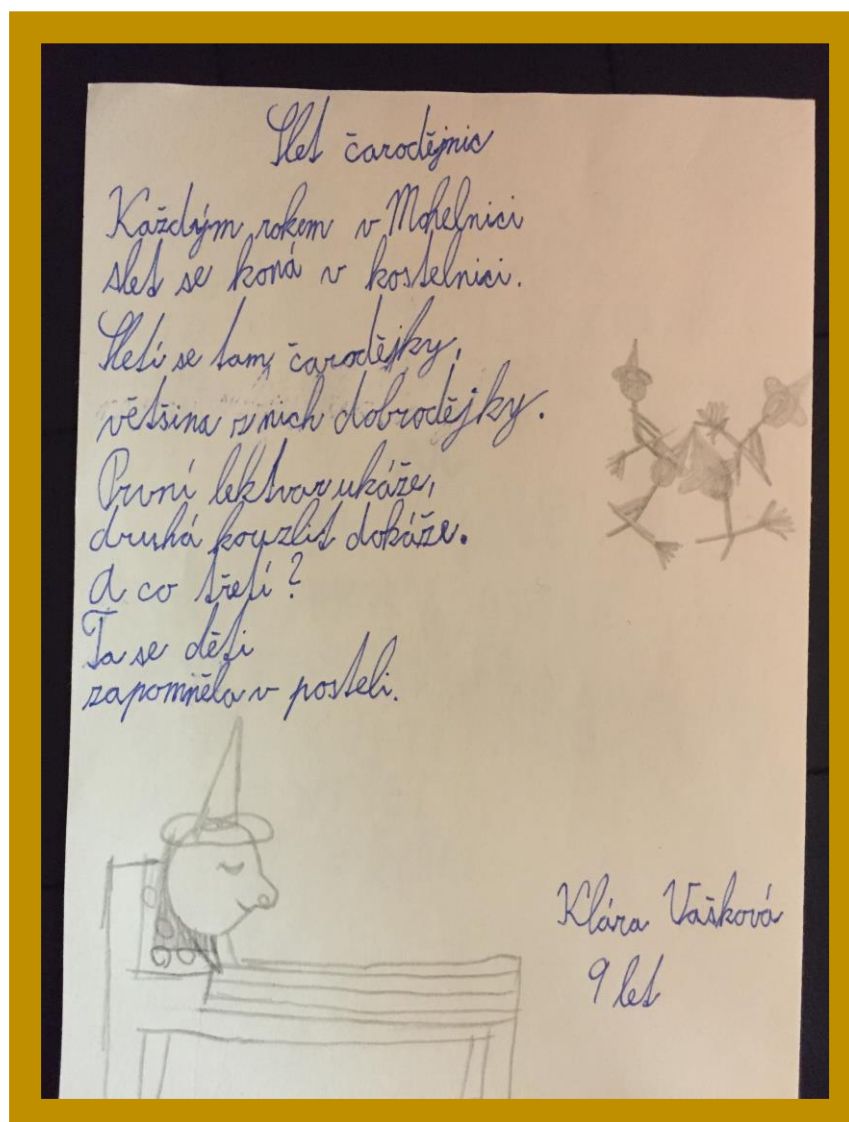 Slet čarodějnic
Každým rokem v Mohelnici
slet se koná v kostelnici.
Sletí se tam čarodějky,
většina z nich dobrodějky.
První lektvar ukáže,
druhá kouzlit dokáže.
A co třetí?
Ta se děti
zapomněla v posteli.
Klára Vašková
9 let